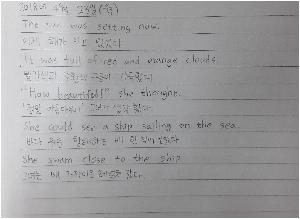 2018년 4월 23일(월)
The sun was setting now.
이제 해가 지고 있었다
It was full of red and orange clouds.
빨간색과 주황색 구름이 가득했다
"How beautiful!" she thought.
'정말 아름다워!' 그녀가 생각 했다.
She could see a ship sailing on the sea.
바다 위를 항해하는 배 한 척이 보였다
She swam close to the ship
그녀는 배 가까이로 헤엄쳐 갔다.